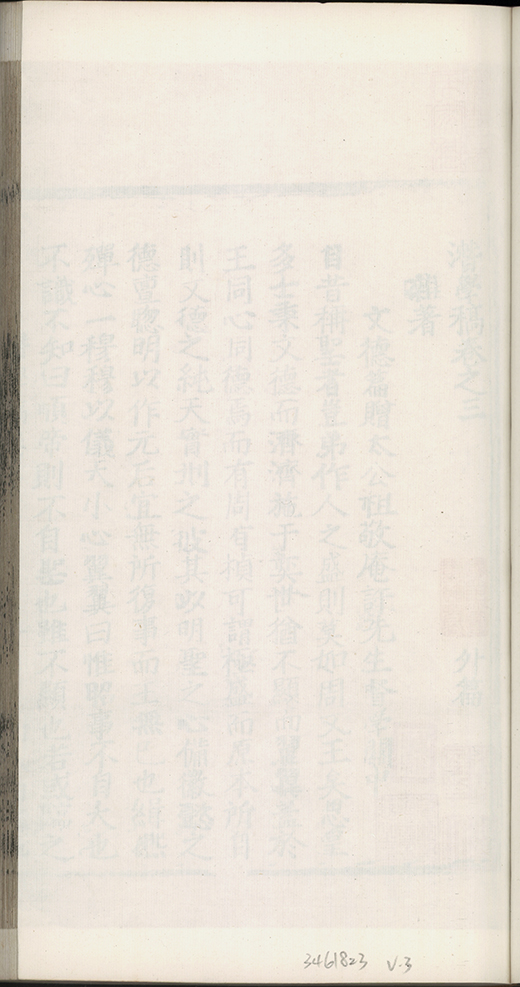 潛學稿卷之三 外篇
著
文德篇贈太公祖敬庵許先生督學
自昔稱聖者豈弟作人之盛則莫如周文王矣思皇
多士秉文德而濟濟哉于奕世猶不顯而翼翼於
王同心同德焉而有周有楨可謂極盛而原本所自
則文德之純天實刑之彼其以明聖之心備懿之
德亶聰明以作元后宜無所復事而王無已也緝熙
殫心一穆穆以儀天小心翼翼曰惟昭事不自大也
不識不知曰順帝則不自聖也雖不顯也若或臨之
3461823 V.3